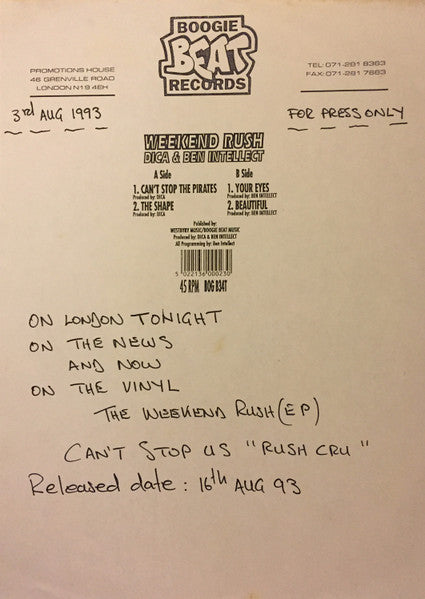 BOOGIE
BEAT
RECORDS
PROMOTIONS HOUSE
46 GRENVILLE ROAD
LONDON N19 4EH
TEL: 071-281 8363
FAX: 071-281 7663
3rd AUG 1993
FOR PRESS ONLY
WEEKEND RUSH
DICA & BEN INTELLECT
A Side
1. CAN'T STOP THE PIRATES
Produced by: DICA
2. THE SHAPE
Produced by: DICA
B Side
1. YOUR EYES
Produced by: BEN INTELLECT
2. BEAUTIFUL
Produced by: BEN INTELLECT
Published by:
WESTBURY MUSIC/BOOGIE BEAT MUSIC
Produced by: DICA & BEN INTELLECT
All Programming by: Ben Intellect
5 022136 000230
45 RPM BOG B34T
ON LONDON TONIGHT
ON THE NEWS
AND NOW
ON THE VINYL
THE WEEKEND RUSH (EP)
CAN'T STOP US "RUSH CRU"
Released date : 16th AUG 93